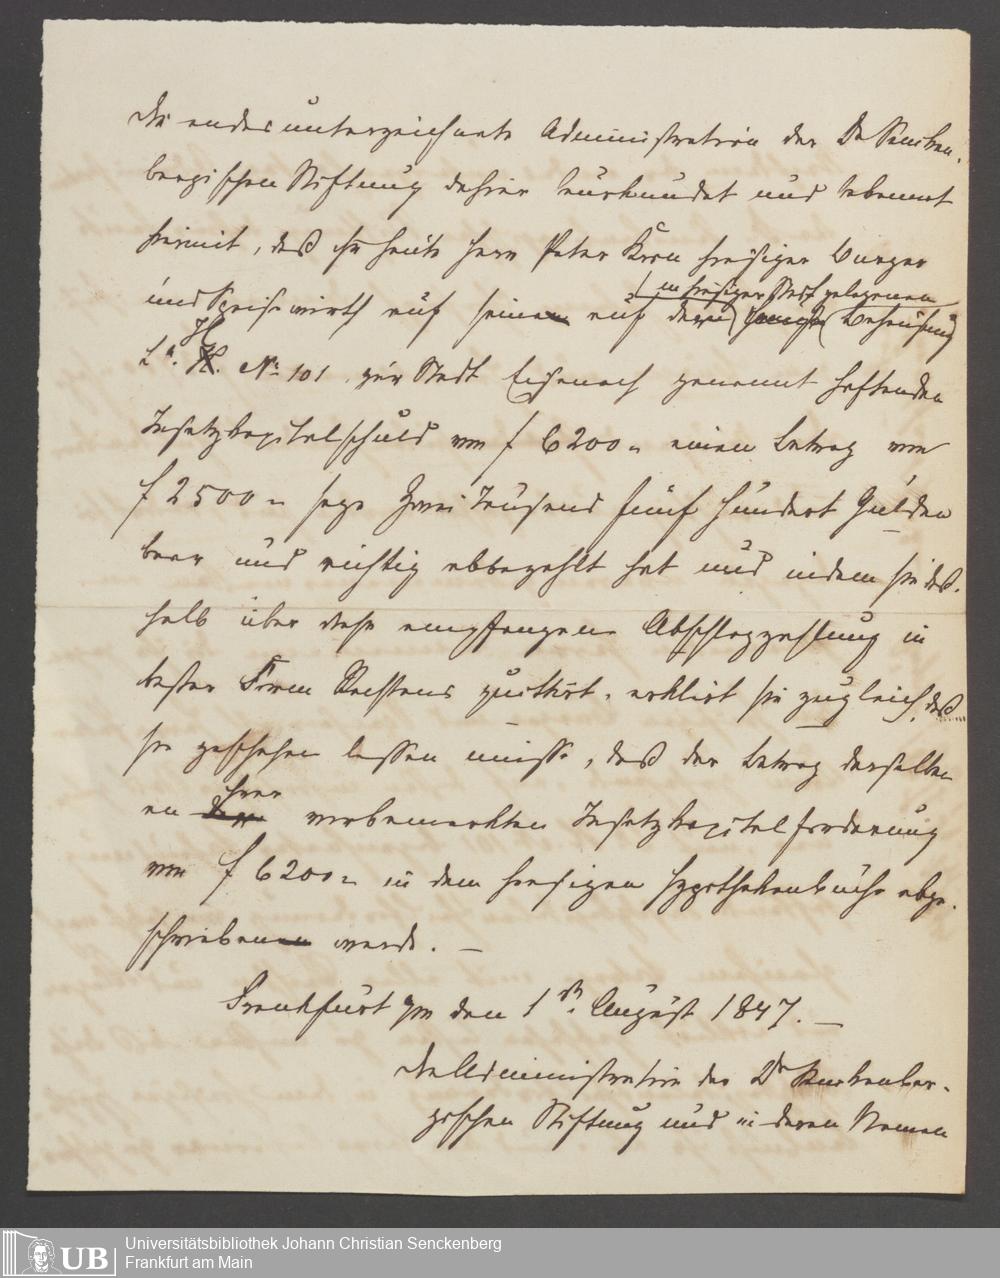 Die endesunterzeichnete Administration der Dr Sencken-
bergischen Stiftung dahier beurkundet und bekennt
hiermit, daß ihr heute Herr Peter Kron hiesiger Bürger
in hiesiger Stadt gelegenen
und Speisewirth auf seinen auf deren Behausung
La. H. No 101 zur Stadt Eisenach genannt haftenden
Insatzkapitalschuld von f 6200 " einen Betrag von
f 2500 " sage Zwei Tausend fünf hundert Gulden
baar und richtig abbezahlt hat und indem sie deß-
halb über diese empfangene Abschlagzahlung in
bester Form Rechtens quittirt, erklärt sie zugleich, daß
sie geschehen lassen müsse, daß der Betrag derselben
an ihrer vorbemerkten Insatzkapitalforderung
von f 6200 " in dem hiesigen Hypothekenbuche abge-
schrieben werde. —
Frankfurt a/m den 1n. August 1847. —
Die Administration der Dr Senckenber-
gischen Stiftung und in deren Namen
UB
Universitätsbibliothek Johann Christian Senckenberg
Frankfurt am Main